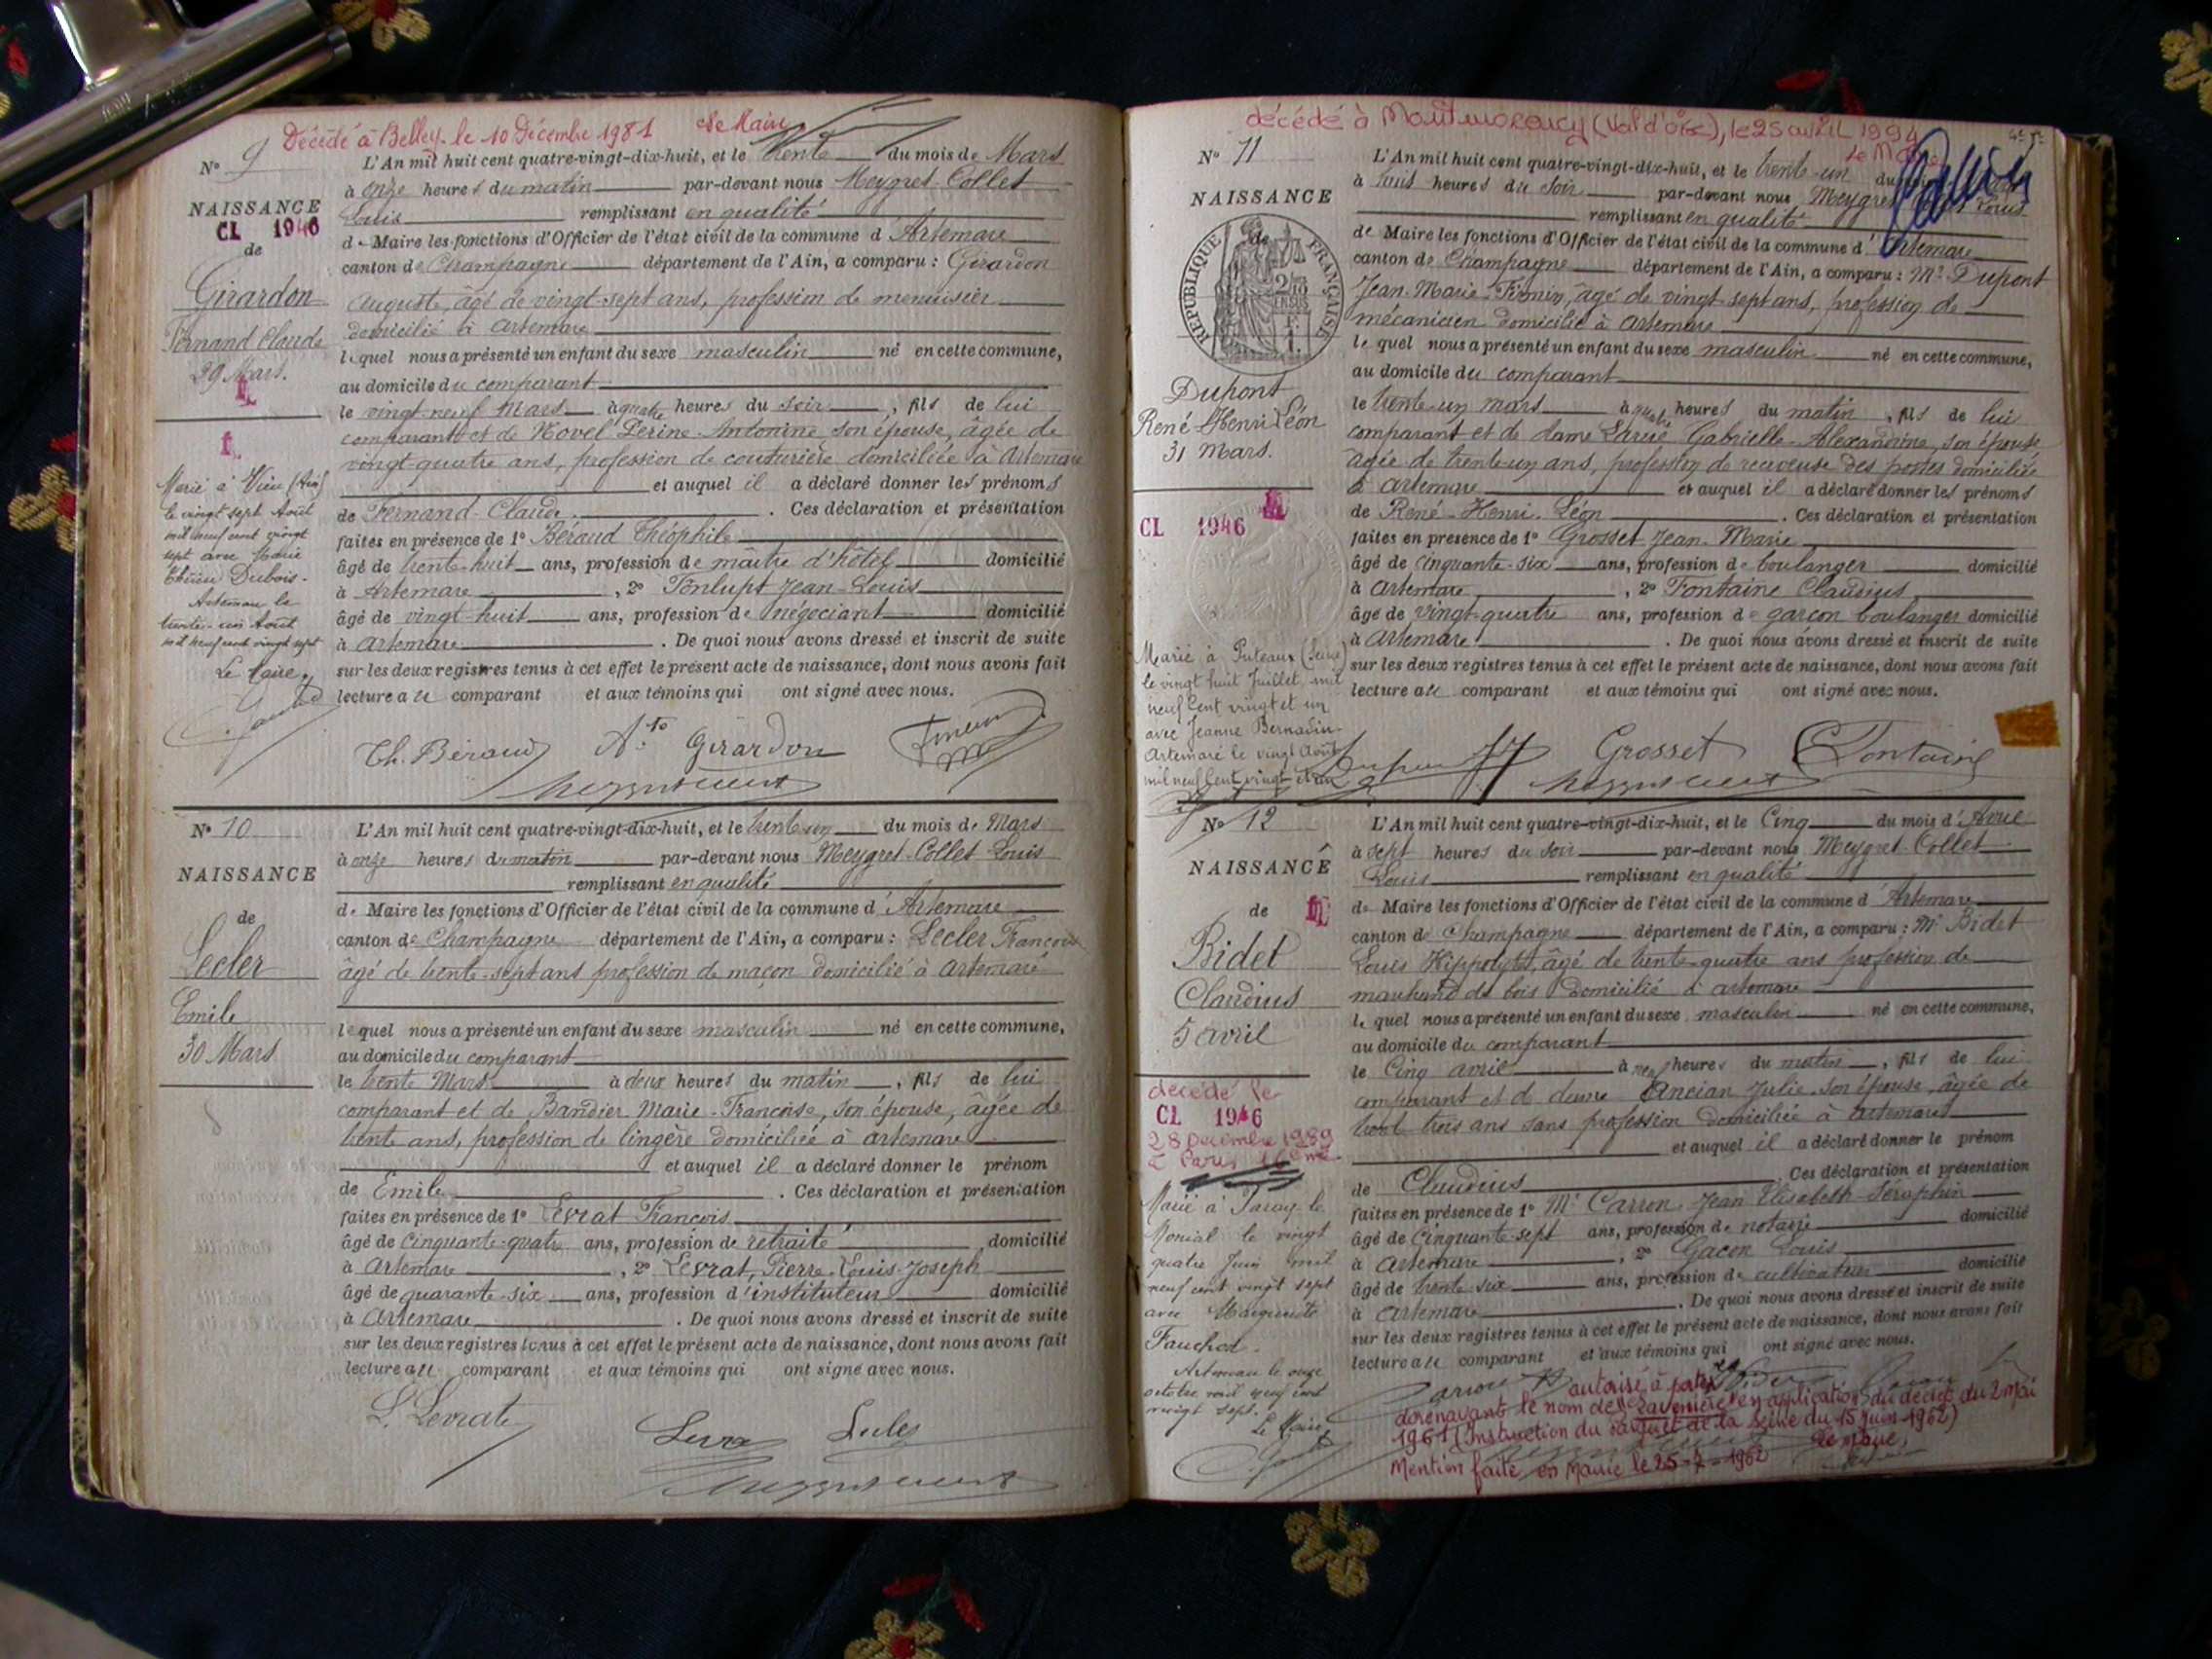 Décédé à Belley le 10 Décembre 1981 Le Maire
N° 9
NAISSANCE
CL 1946
de
Girardon
Fernand Claude
29 Mars.
Marié à Vieu (Ain)
le vingt sept Août
mil neuf cent vingt
sept avec Marie
Dubois.
Artemare le
trente-un Août
mil neuf cent vingt sept
Le Maire,
L'An mil huit cent quatre-vingt-dix-huit, et le trente du mois de Mars
à onze heures du matin par-devant nous Meygret-Collet
Louis remplissant en qualité
de Maire les fonctions d'Officier de l'état civil de la commune d'Artemare
canton de Champagne département de l'Ain, a comparu : Girardon
Auguste, âgé de vingt-sept ans, profession de menuisier
domicilié à Artemare
lequel nous a présenté un enfant du sexe masculin né en cette commune,
au domicile du comparant
le vingt-neuf Mars à quatre heures du soir, fils de lui
comparant et de Hovel Perine-Antonine, son épouse, âgée de
vingt-quatre ans, profession de couturière domiciliée à Artemare
et auquel il a déclaré donner les prénoms
de Fernand-Claude. Ces déclaration et présentation
faites en présence de 1° Béraud Théophile
âgé de trente-huit ans, profession de maître d'hôtel domicilié
à Artemare, 2° Bonlupt Jean-Louis
âgé de vingt-huit ans, profession de négociant domicilié
à Artemare. De quoi nous avons dressé et inscrit de suite
sur les deux registres tenus à cet effet le présent acte de naissance, dont nous avons fait
lecture au comparant et aux témoins qui ont signé avec nous.
Th. Béraud Ate Girardon
N° 10
NAISSANCE
de
Lecler
Emile
30 Mars
L'An mil huit cent quatre-vingt-dix-huit, et le trente un du mois de Mars
à onze heures du matin par-devant nous Meygret-Collet Louis
remplissant en qualité
de Maire les fonctions d'Officier de l'état civil de la commune d'Artemare
canton de Champagne département de l'Ain, a comparu : Lecler François
âgé de trente-sept ans profession de maçon domicilié à Artemare
lequel nous a présenté un enfant du sexe masculin né en cette commune,
au domicile du comparant
le trente Mars à deux heures du matin, fils de lui
comparant et de Bandier Marie-Françoise, son épouse, âgée de
trente ans, profession de lingère domiciliée à Artemare
et auquel il a déclaré donner le prénom
de Emile. Ces déclaration et présentation
faites en présence de 1° Levrat François
âgé de cinquante-quatre ans, profession de retraité domicilié
à Artemare, 2° Levrat, Pierre-Louis-Joseph
âgé de quarante-six ans, profession d'instituteur domicilié
à Artemare. De quoi nous avons dressé et inscrit de suite
sur les deux registres tenus à cet effet le présent acte de naissance, dont nous avons fait
lecture au comparant et aux témoins qui ont signé avec nous.
L. Levrat
décédé à Montmorency (Val d'Oise), le 25 avril 1994
Le Maire
N° 11
NAISSANCE
de
RÉPUBLIQUE FRANÇAISE
Dupont
René Henri Léon
31 Mars.
CL 1946
Marié à Puteaux (Seine)
le vingt huit Juillet mil
neuf Cent vingt et un
avec Jeanne Bernadin
Artemare le vingt Août
mil neuf Cent vingt et un
L'An mil huit cent quatre-vingt-dix-huit, et le trente-un du
à trois heures du soir par-devant nous Meygret Louis
remplissant en qualité
de Maire les fonctions d'Officier de l'état civil de la commune d'Artemare
canton de Champagne département de l'Ain, a comparu : Mr Dupont
Jean-Marie-Firmin, âgé de vingt-sept ans, profession de
mécanicien domicilié à Artemare
lequel nous a présenté un enfant du sexe masculin né en cette commune,
au domicile du comparant
le trente-un mars à quatre heures du matin, fils de lui
comparant et de dame Gabrielle-Alexandrine, son épouse
âgée de trente-un ans, profession de receveuse des postes domiciliée
à Artemare et auquel il a déclaré donner les prénoms
de René-Henri-Léon. Ces déclaration et présentation
faites en présence de 1° Grosset Jean-Marie
âgé de cinquante-six ans, profession de boulanger domicilié
à Artemare, 2° Fontaine Claudius
âgé de vingt-quatre ans, profession de garçon boulanger domicilié
à Artemare. De quoi nous avons dressé et inscrit de suite
sur les deux registres tenus à cet effet le présent acte de naissance, dont nous avons fait
lecture au comparant et aux témoins qui ont signé avec nous.
Grosset C Fontaine
N° 12
NAISSANCE
de
Bidet
Claudius
5 avril
décédé le
CL 1946
28 Décembre 1989
à Paris
Marié à Paray-le
Monial le vingt
quatre Juin mil
neuf cent vingt sept
avec Marguerite
Fauchon.
Artemare le onze
octobre mil neuf cent
vingt sept.
Le Maire,
L'An mil huit cent quatre-vingt-dix-huit, et le Cinq du mois d'Avril
à sept heures du soir par-devant nous Meygret-Collet
Louis remplissant en qualité
de Maire les fonctions d'Officier de l'état civil de la commune d'Artemare
canton de Champagne département de l'Ain, a comparu : Mr Bidet
Louis Hippolyte, âgé de trente-quatre ans profession de
marchand de bois domicilié à Artemare
lequel nous a présenté un enfant du sexe masculin né en cette commune,
au domicile du comparant
le Cinq avril à neuf heures du matin, fils de lui
comparant et de dame Ancian Julie son épouse, âgée de
trois ans sans profession domiciliée à Artemare
et auquel il a déclaré donner le prénom
de Claudius Ces déclaration et présentation
faites en présence de 1° Mr Carron Jean Elisabeth-Séraphin
âgé de Cinquante-sept ans, profession de notaire domicilié
à Artemare, 2° Gacon Louis
âgé de trente six ans, profession de cultivateur domicilié
à Artemare. De quoi nous avons dressé et inscrit de suite
sur les deux registres tenus à cet effet le présent acte de naissance, dont nous avons fait
lecture au comparant et aux témoins qui ont signé avec nous.
autorisé à porter
dorénavant le nom de "Lavenière" en application du décret du 2 mai
1961 (Instruction du Parquet de la Seine du 15 juin 1962)
Mention faite en Mairie le 25-7-1962 Le Maire,